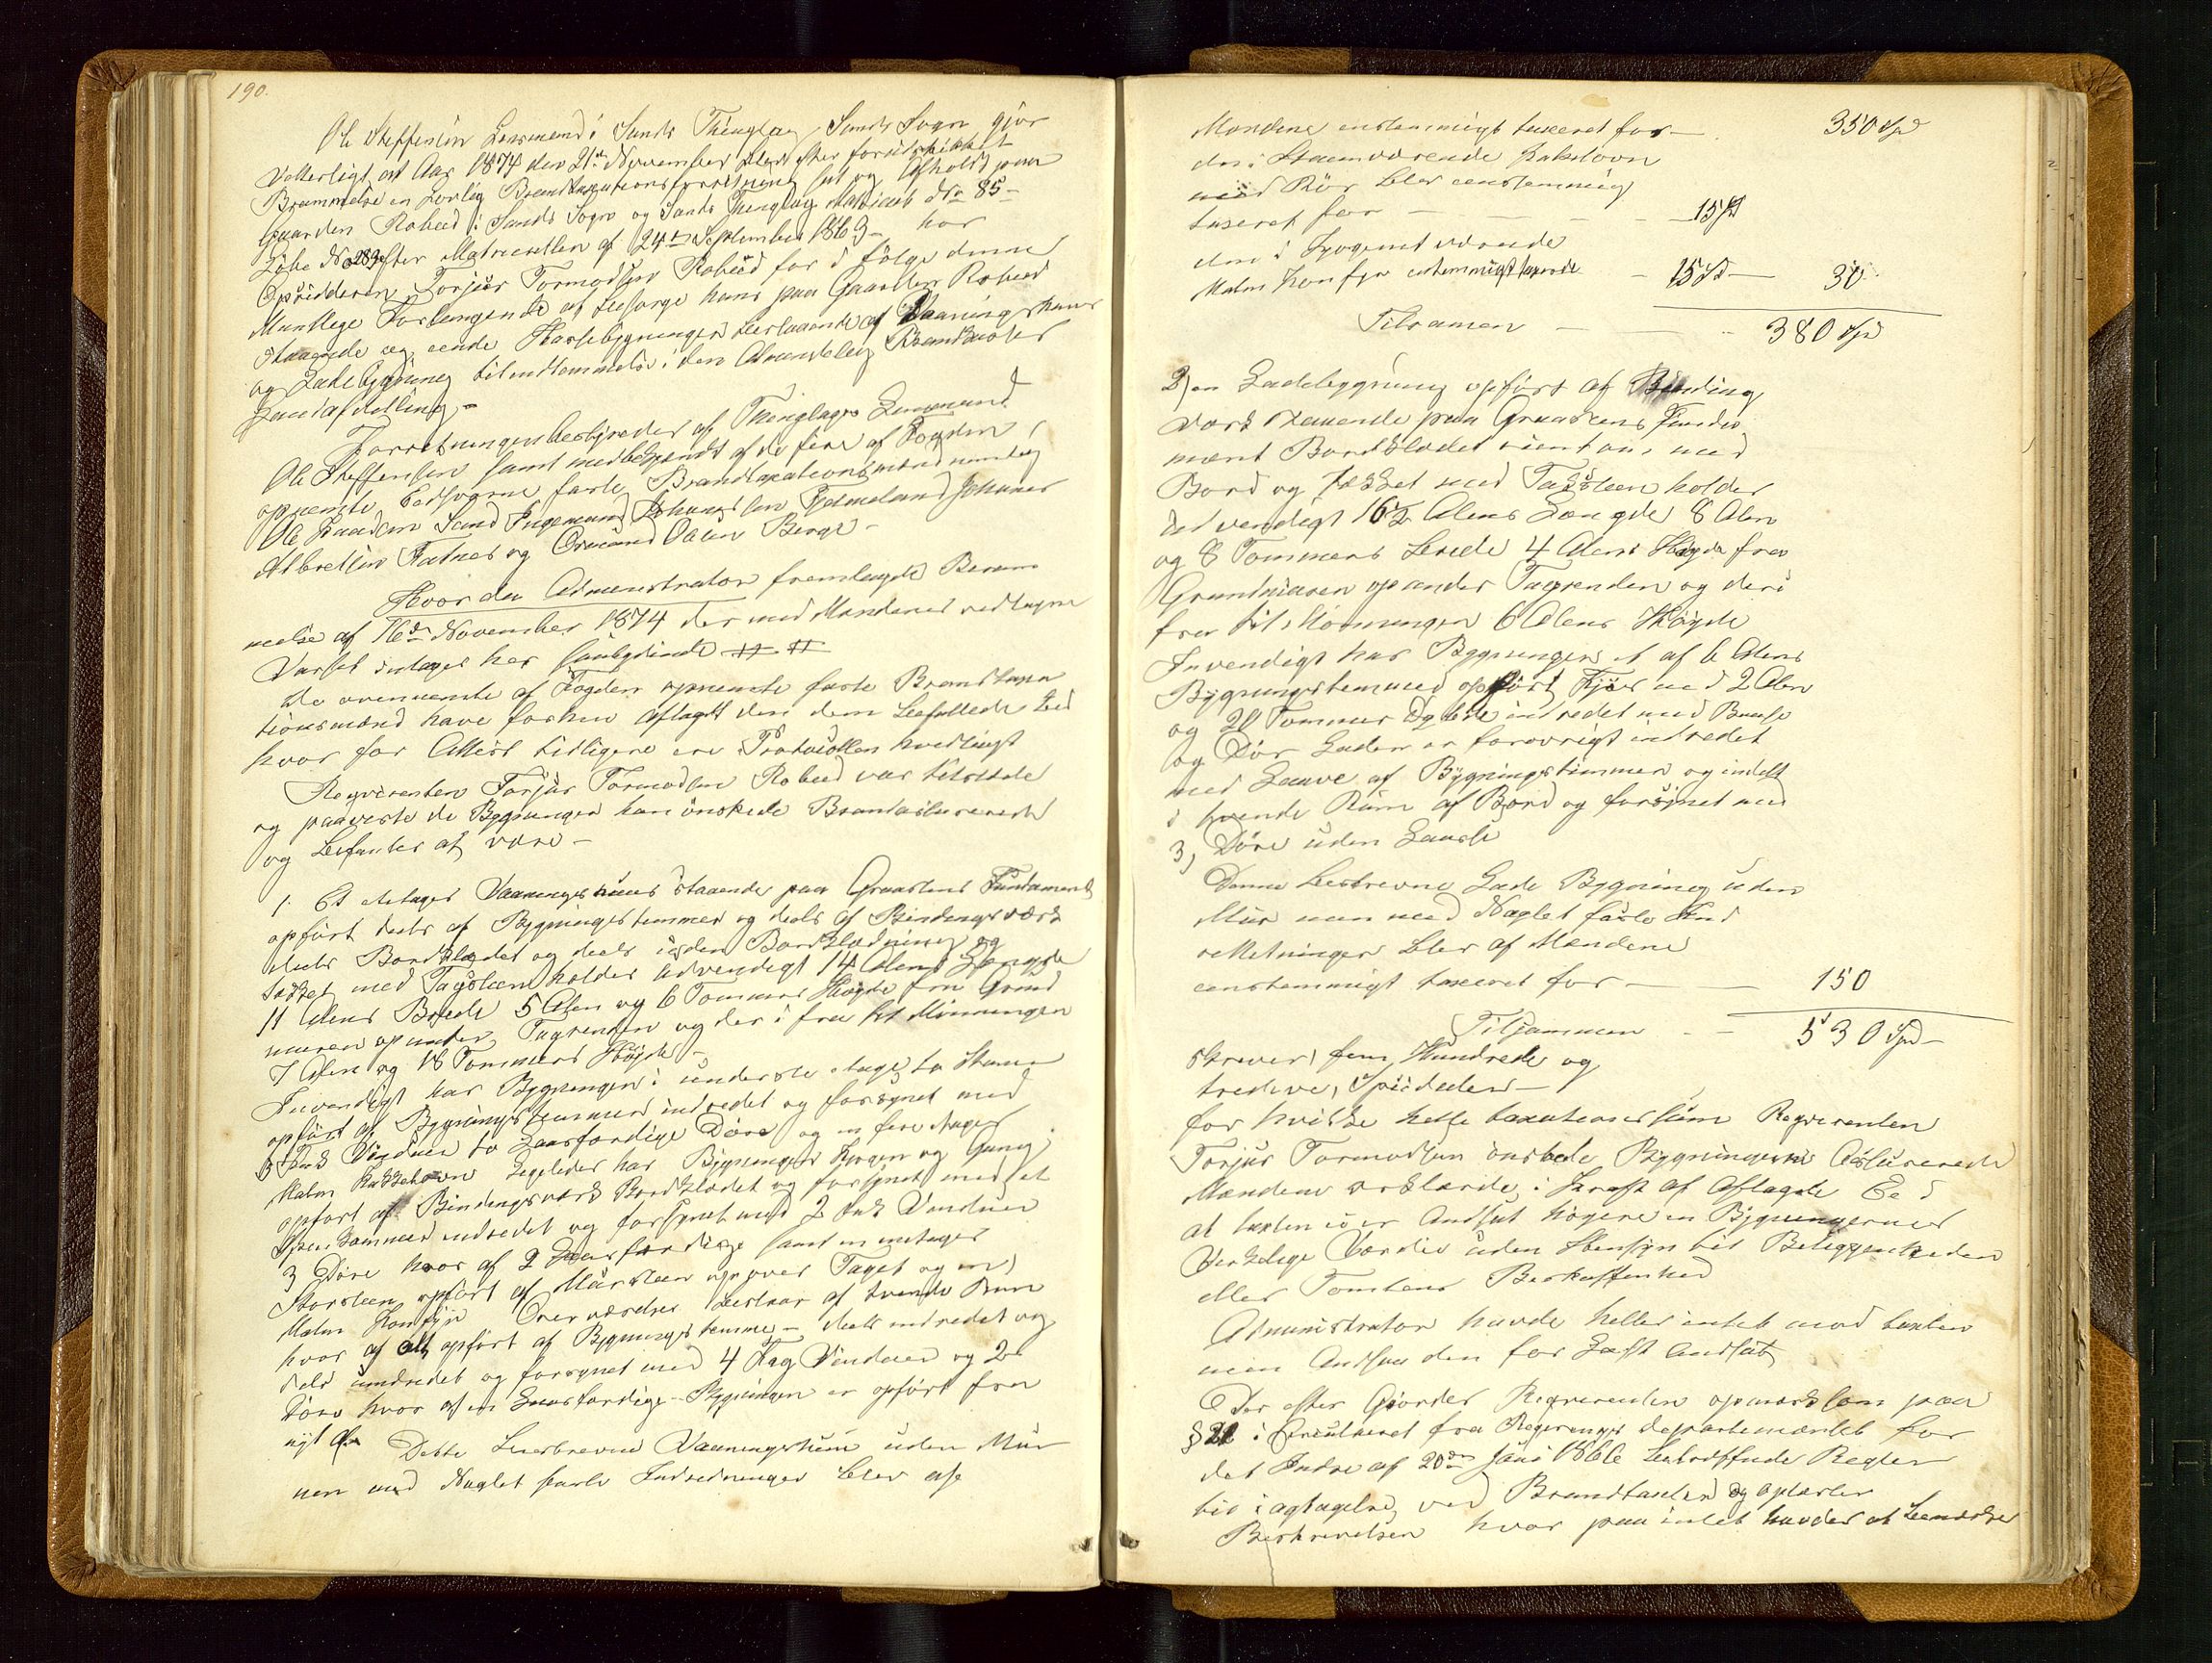 190.
Ole Steffensen Lensmand i Sands Thinglag Sands Sogn gjør
Vitterligt at Aar 1874 den 21de November blev efter forudskikket
Berammelse en Lovlig Brandtaxationsforretning sat og Afholdt paa
Gaarden Robeed i Sands Sogn og Sands Thinglag Matricul Nr 85
Løbe No 283 efter Matriculen af 24de September 1863 hvor
Opsidderen Torjus Tormodsen Robeed har i følge denne
Mundtlige Forlangende at besørge hans paa Gaarden Robeed
staaende og eiende Huusebygninger bestaaende af Vaaningshuus
og Ladebygning til indlemmelse i den Almindelig Brandkasses
Landafdelling -
Forretningen bestyredes af Thinglagets Lensmand
Ole Steffensen samt medbetjendt af de fire af Fogden
opnævnte Edsvorne faste Brandtaxationsmænd nemlig
Ole Knudsen Sand Ingemund Johannessen Hjelmeland Johannes
Albretsen Fatnes og Osmund Olsen Berge -
Hvor da Administrator fremlagde Beram
melse af 16de November 1874 der med Mændenes vedtagne
Varsel intages her saalydende
De ovennævnte af Fogden opnævnte faste Brandtaxa
tionsmænd have forhen aflagt den dem befallede Eed
hvor for Attest tidligere ere Protocollen hvedligst
Reqvirenten Torjus Tormodsen Robeed var tilstede
og paaviste de Bygninger han ønskede Brandassurerede
og befandtes at være -
1. Et etetages Vaaningshuus staaende paa Graastens Fundament
opført deels af Bygningstømmer og deels af Bindingsværk
deels Bordklædet og deels uden Bordklædning og
tækket med Tagsteen holder udvendigt 14 Alens Længde
11 Alens Brede 5 Alen og 6 Tommers Høyde fra Grund
muren op under Tagrenden og der i fra til Mønningen
7 Alen og 18 Tommers Høyde -
Invendigt har Bygningen i underste etage to Stuer
opført af Bygningstømmer indredet og forsynet med
3 Fak Vinduer to Laasfærdige Døre og en fire etages
Malm Kakkelovn Ligeledes har Bygningen Kjøgen og Gang
opført af Bindingsværk Bordklædet og forsynet med et
Spisekammer indredet og forsynet med 2 Fak Vinduer
3 Døre hvor af 2 Laasfærdige samt en eetages
Skorsteen opført af Mursteen op over Taget og en
Malm Komfyr Overværelset bestaar af tvende Rum
hvor af alt opført af Bygningstømmer - deels indredet og
deels uindredet og forsynet med 4 Fag Vinduer og 2de
Døre hvor af en Laasfærdige - Bygningen er opført fra
nyt af
Dette beskrevne Vaaningshuus uden Mur
men med Naglet faste Indredninger blev af
Mændene enstemmigt taxeret for - 350 Spd
den i Stuen værende Kakelovn
med Rør blev eenstemmig
taxeret for - 15 Spd
den i Kjøgenet værende
Malm Komfyr enstemmigt taxerede - 15 Spd - 30
Tilsamen - 380 Spd
2) en Ladebygning opført af Binding
værk staaende paa Graastens Funda
ment Bordklædet uentom, med
Bord og tækket med Tagsteen holder
udvendigt 16½ Alens Længde 8 Alen
og 8 Tommers brede 4 Alens Høyde fra
Grundmuren op under Tagrenden og deri
fra til Mønningen 6 Alens Høyde
Invendigt har Bygningen et af 6 Alens
Bygningstømmer opført Fjøs med 2 Alen
og 20 Tommer Dybde indredet med Baase
og Dør Laden er forøvrigt indredet
med Laave af Bygningstimmer og indelt
i tvende Rum af Bord og forsynet med
3, Døre uden Laase
Denne beskrevne Lade Bygning uden
Mur men med Naglet faste Ind
retninger blev af Mændene
eenstemmigt taxeret for - 150
Tilsammen - 530 Spd -
skriver, fem Hundrede og
tredeve, Spiidaler -
for hvilke hele taxationssum Reqvirenten
Torjus Tormodsen ønskede Bygningerne Assurerede
Mændene erklærede i Kraft af aflagde Eed
at taxten ei er Andsat høyere en Bygningernes
Verkelige Værdie uden Hensyn til Beliggenheden
eller Tomtens Beskaffenhed
Administrator havde heller intet mod taxten
men Andsaa den for Laft andsat
Der efter Gjordes Reqvirenten opmærksom paa
§ 21 i Circulæret fra Regjerings Departementet for
det Indre af 20de Juni 1866 betreffende Regler
til iagtagelse ved Brandtaxter og oplæstes
Beskrivelsen hvor paa intet havdes at bemærke